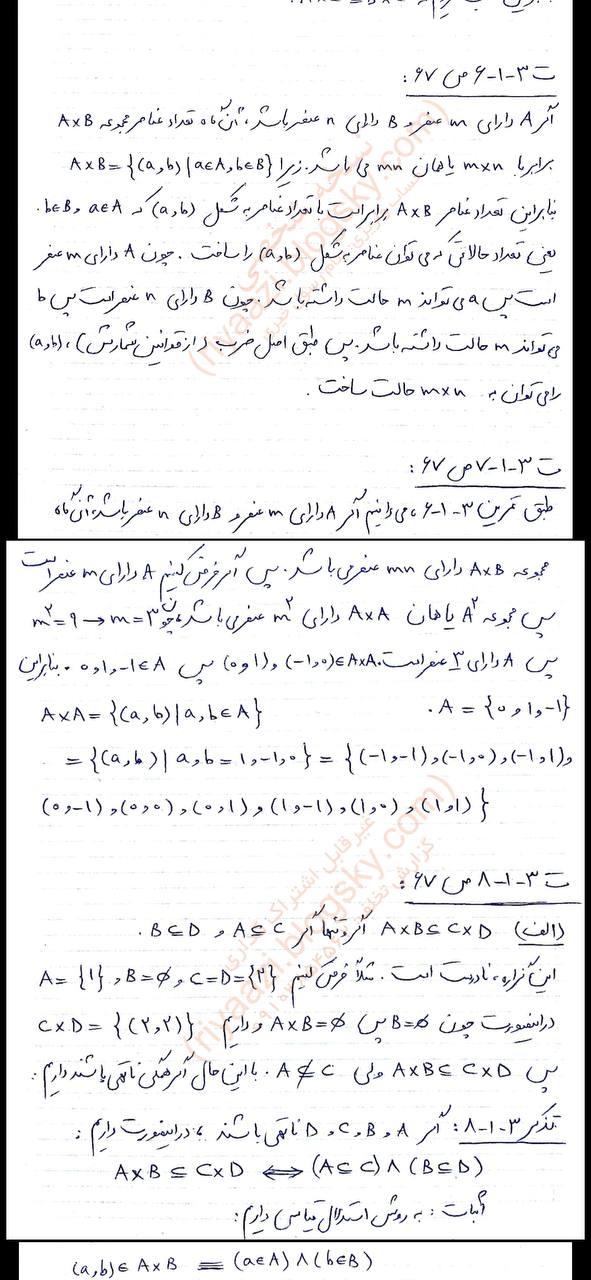 ت ۳-۱-۶ ص ۶۷:
اگر A دارای m عنصر و B دارای n عنصر باشد، آن‌گاه تعداد عناصر مجموعه A×B
برابر با m×n یا همان mn می باشد. زیرا A×B={(a,b)|a∈A,b∈B}
بنابراین تعداد عناصر A×B برابر است با تعداد عناصر به شکل (a,b) که a∈A و b∈B.
یعنی تعداد حالاتی که می توان عناصر به شکل (a,b) را ساخت. چون A دارای m عنصر
است پس a می تواند m حالت داشته باشد. چون B دارای n عنصر است پس b
می تواند n حالت داشته باشد. پس طبق اصل ضرب (از قوانین شمارش)، (a,b)
را می توان به m×n حالت ساخت.
ت ۳-۱-۷ ص ۶۷:
طبق تمرین ۳-۱-۶، می دانیم اگر A دارای m عنصر و B دارای n عنصر باشد، آن‌گاه
مجموعه A×B دارای mn عنصر می باشد. پس اگر فرض کنیم A دارای m عنصر است
پس مجموعه A² یا همان A×A دارای m² عنصر می باشد، چون m²=۹ → m=۳
پس A دارای ۳ عنصر است. (-۱,۰) و (۱,۰)∈A×A پس -۱,۱,۰∈A. بنابراین
A = {۰ و ۱ و -۱}.
A×A={(a,b)|a,b∈A}
={(a,b)|a,b=۱,-۱,۰}={(-۱,-۱),(-۱,۰),(-۱,۱),
(۰,-۱),(۰,۰),(۰,۱),(۱,-۱),(۱,۰),(۱,۱)}
ت ۳-۱-۸ ص ۶۷:
(الف) A×B⊆C×D اگر و تنها اگر A⊆C و B⊆D.
این گزاره، نادرست است. مثلاً فرض کنیم A={۱}, B=∅, C=D={۲}
در اینصورت چون B=∅ پس A×B=∅ و داریم C×D={(۲,۲)}
پس A×B⊆C×D ولی A⊄C. با این حال اگر همگی ناتهی باشند داریم:
تذکر ۳-۱-۸: اگر A و B و C و D ناتهی باشند، در اینصورت داریم:
A×B⊆C×D ⟺ (A⊆C)∧(B⊆D)
اثبات: به روش استدلال قیاسی داریم:
(a,b)∈A×B ≡ (a∈A)∧(b∈B)